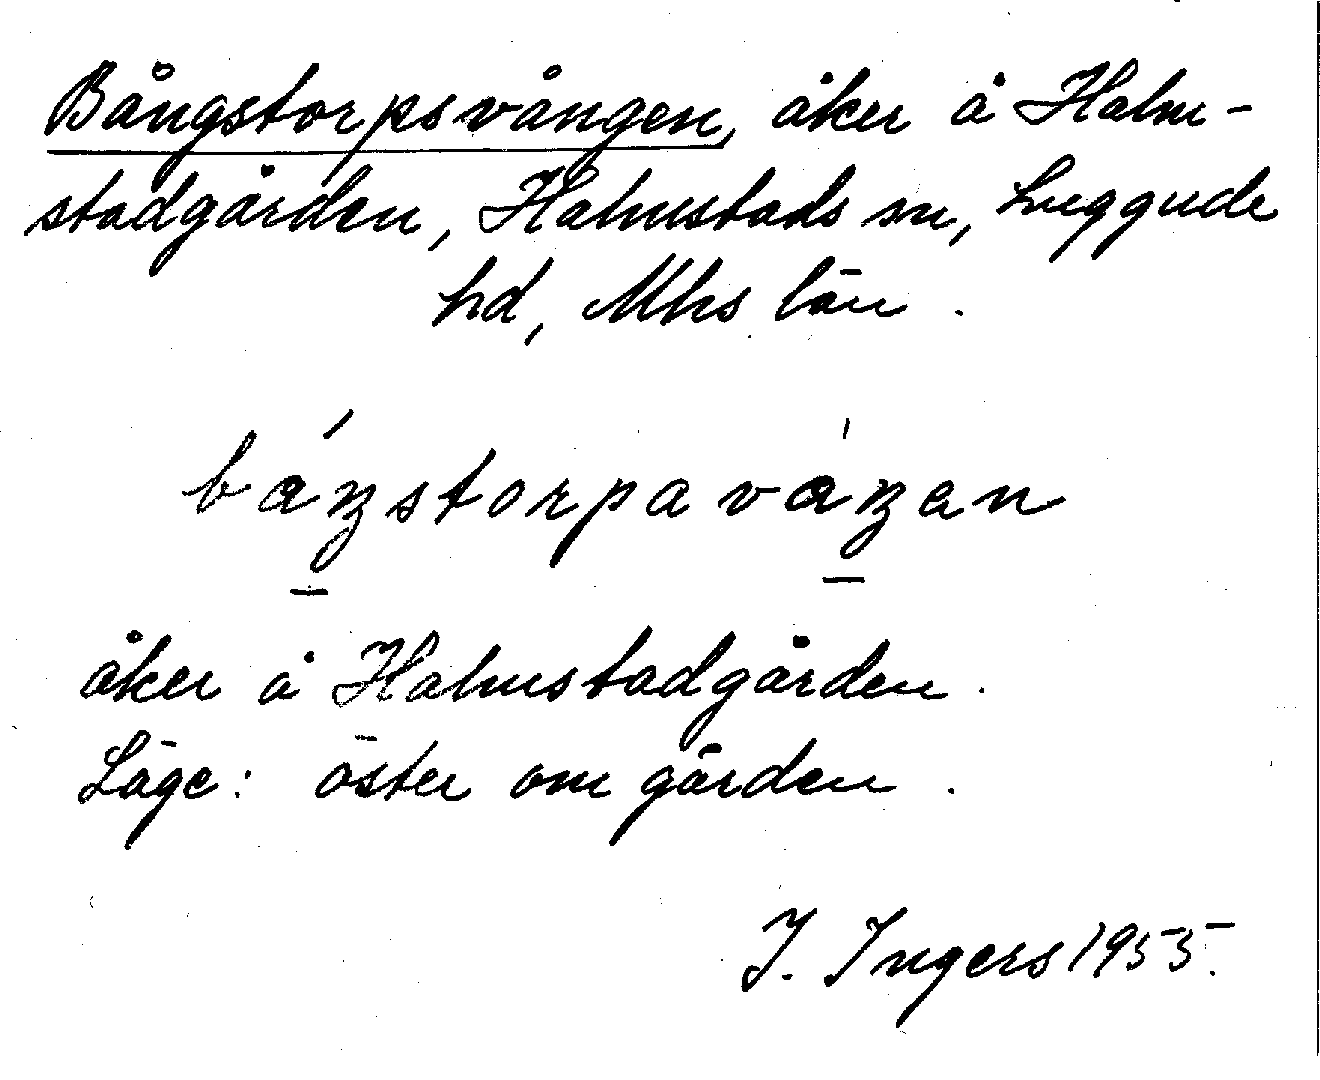 Bångstorpsvången, åker å Halm-
stadgården, Halmstads sn, Luggude
hd, Mhs län.
báŋstorpavàŋen
åker å Halmstadgården.
Läge: öster om gården.
I. Ingers 1955.